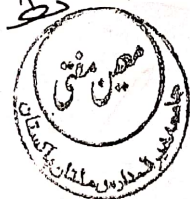 معین مفتی
جامعہ خیر المدارس ملتان پاکستان